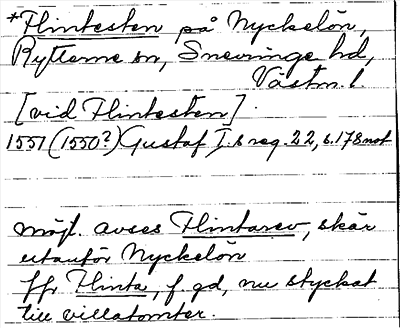 *Flintesten på Nyckelön,
Rytterne sn, Snevringe hd,
Västm. l.
[vid Flintesten].
1551 (1550?) Gustaf I:s reg. 22, s. 178 not
möjl. avses Flintarev, skär
utanför Nyckelön
Jfr Flinta, f. gd, nu styckat
till villatomter.